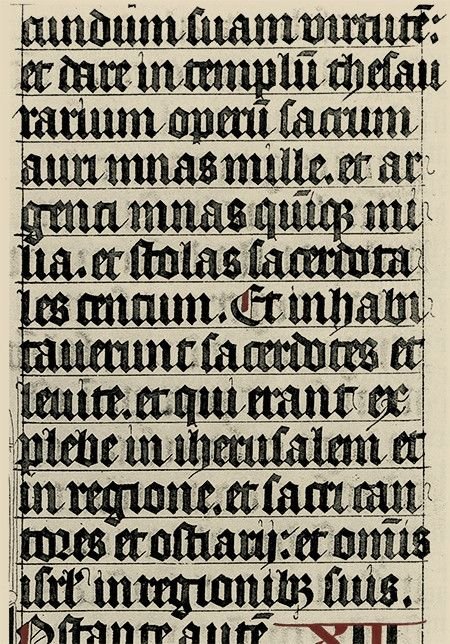 cundūm suam virtutē:
et dare in templū thesau
rarium operū sacrum
auri mnas mille. et ar
genti mnas quīqꝫ mi
lia. et stolas sacerdota
les centum. Et inhabi
tauerunt sacerdotes et
leuite. et qui erant ex
plebe in iherusalem et
in regione. et sacri can
tores et ostiarij: et om̄is
isrl' in regionibꝫ suis.
Nstante autē XIII